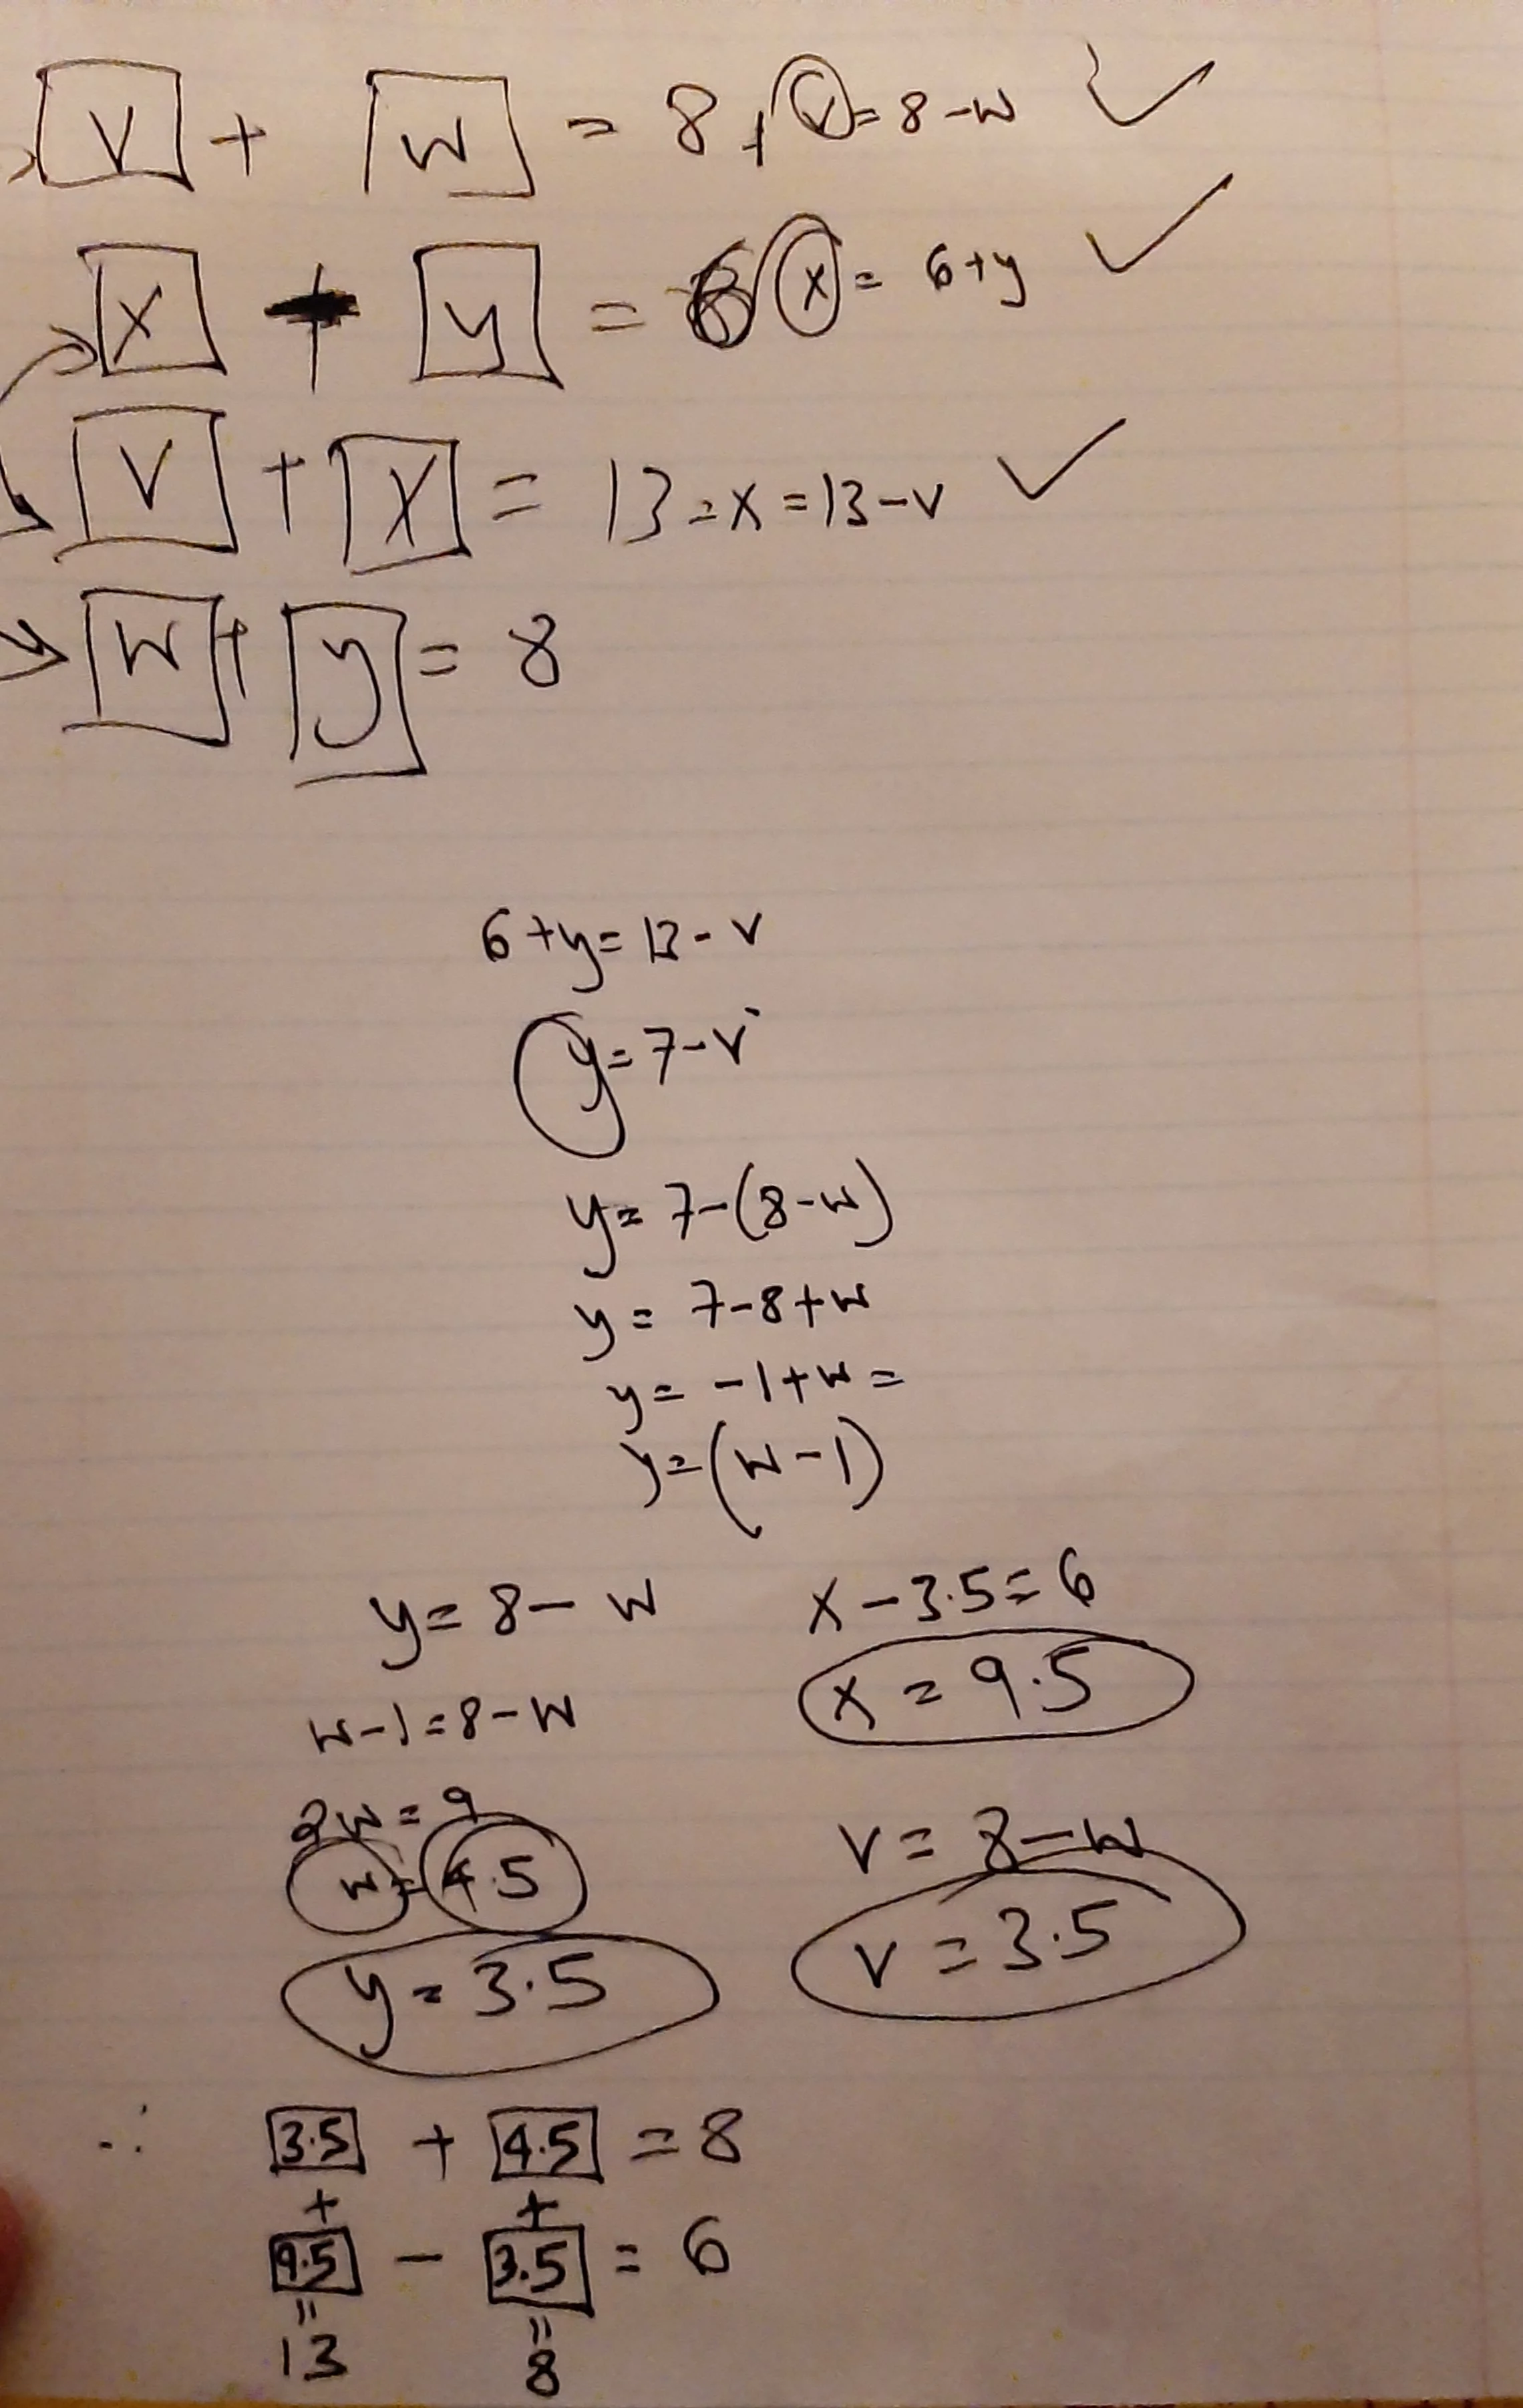 V + W = 8, V = 8-W
X - y = 6 X = 6+y
V + X = 13 = X = 13-V
W + y = 8
6+y = 13-V
y = 7-V
y = 7-(8-W)
y = 7-8+W
y = -1+W =
y = (W-1)
y = 8-W X-3.5 = 6
X = 9.5
W-1 = 8-W
2W = 9 V = 8-W
W = 4.5
V = 3.5
y = 3.5
∴ 3.5 + 4.5 = 8
+ +
9.5 - 3.5 = 6
= =
13 8